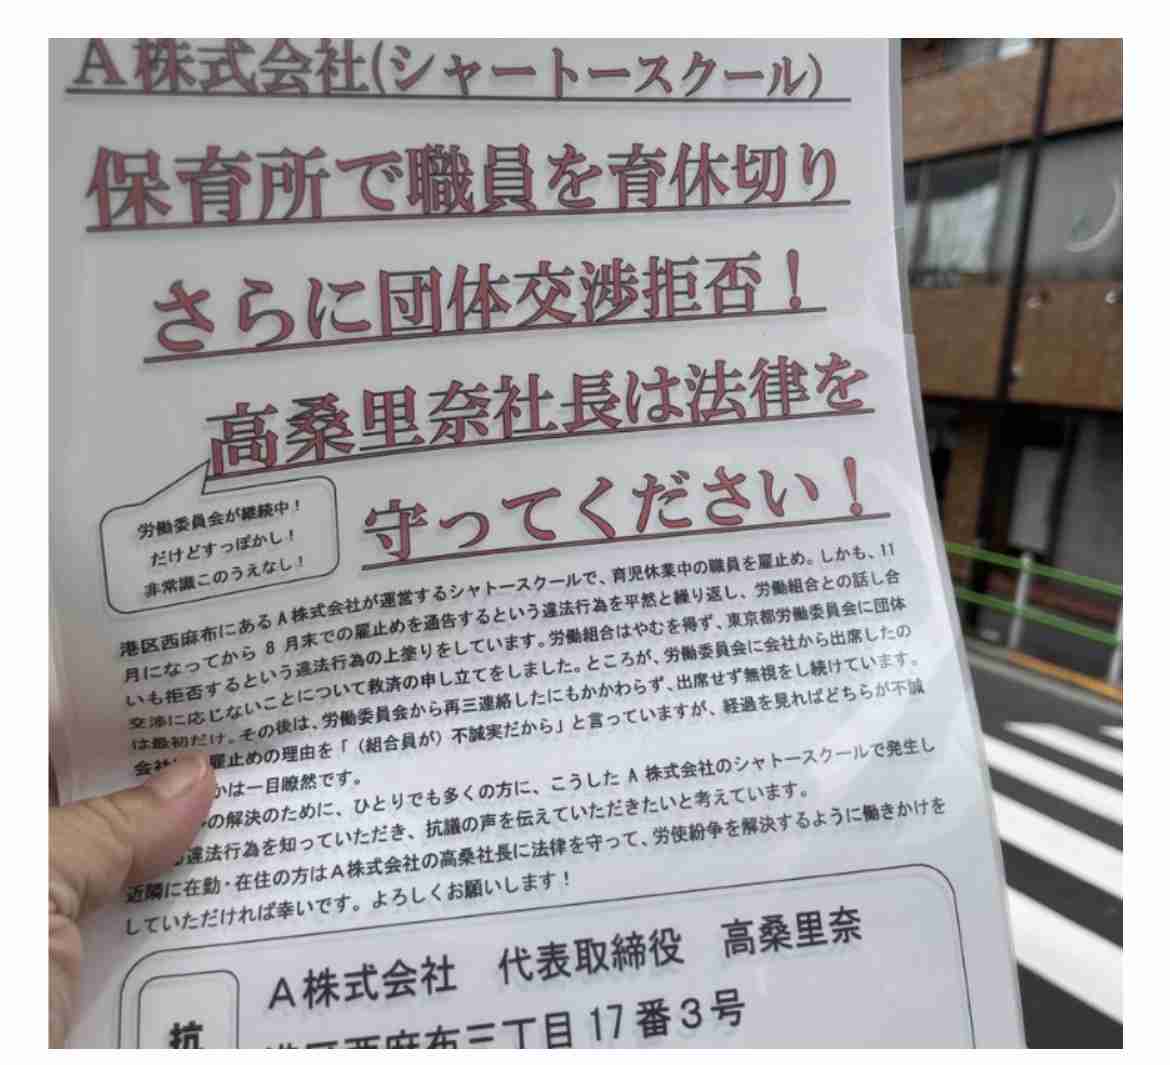 A株式会社(シャートースクール)
保育所で職員を育休切り
さらに団体交渉拒否！
高桑里奈社長は法律を
守ってください！
労働委員会が継続中！
だけどすっぽかし！
非常識このうえなし！
港区西麻布にあるA株式会社が運営するシャトースクールで、育児休業中の職員を雇止め。しかも、11
月になってから 8 月末での雇止めを通告するという違法行為を平然と繰り返し、労働組合との話し合
いも拒否するという違法行為の上塗りをしています。労働組合はやむを得ず、東京都労働委員会に団体
交渉に応じないことについて救済の申し立てをしました。ところが、労働委員会に会社から出席したの
は最初だけ。その後は、労働委員会から再三連絡したにもかかわらず、出席せず無視をし続けています。
会社 雇止めの理由を「（組合員が）不誠実だから」と言っていますが、経過を見ればどちらが不誠
かは一目瞭然です。
の解決のために、ひとりでも多くの方に、こうした A 株式会社のシャトースクールで発生し
違法行為を知っていただき、抗議の声を伝えていただきたいと考えています。
近隣に在勤・在住の方はA株式会社の高桑社長に法律を守って、労使紛争を解決するように働きかけを
していただければ幸いです。よろしくお願いします！
抗
A株式会社　代表取締役　高桑里奈
港区西麻布三丁目 17 番 3 号